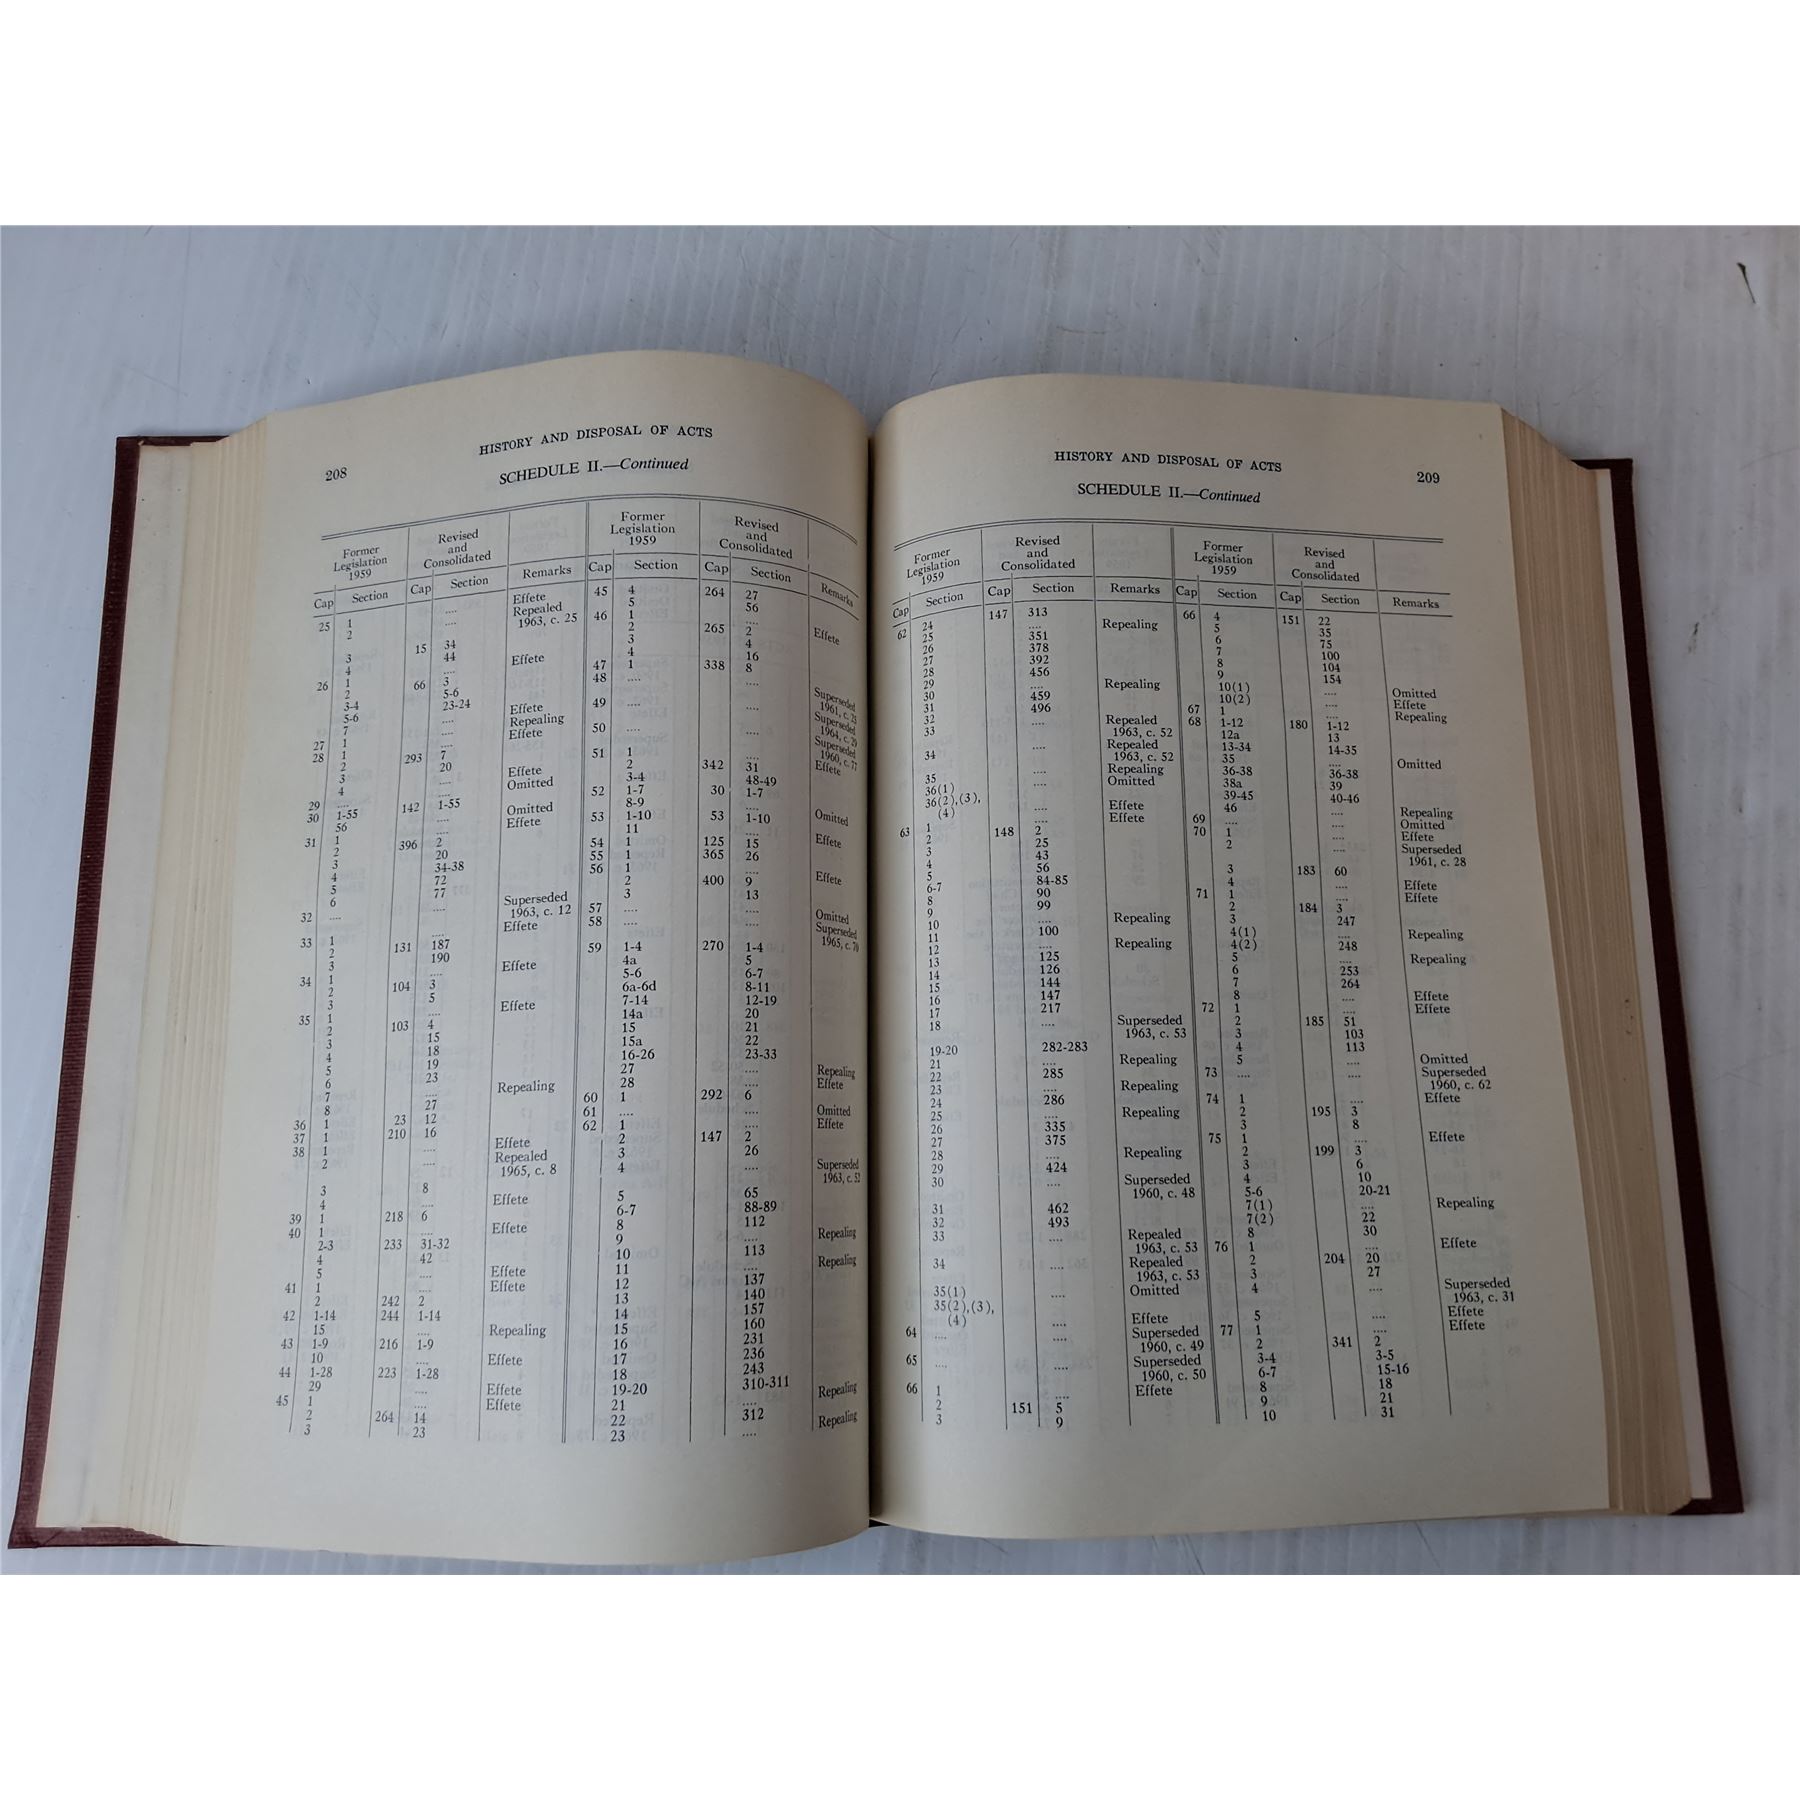 208
HISTORY AND DISPOSAL OF ACTS
SCHEDULE II.—Continued
Former Legislation 1959 Revised and Consolidated
Cap Section Cap Section Remarks
25 1 .... Effete
2 .... Repealed
1963, c. 25
3 15 34
4 44
26 1 .... Effete
2 66 3
3-4 5-6
5-6 23-24
7 .... Effete
27 1 .... Repealing
28 1 .... Effete
2 293 7
3 20
4 .... Effete
29 .... .... Omitted
30 1-55 142 1-55
56 .... Omitted
31 1 .... Effete
2 396 2
3 20
4 34-38
5 72
6 77
32 .... .... Superseded
1963, c. 12
33 1 .... Effete
2 131 187
3 190
34 1 .... Effete
2 104 3
3 5
35 1 .... Effete
2 103 4
3 15
4 18
5 19
6 23
7 .... Repealing
8 27
36 1 23 12
37 1 210 16
38 1 .... Effete
2 .... Repealed
1965, c. 8
3 8
4 .... Effete
39 1 218 6
40 1 .... Effete
2-3 233 31-32
4 42
5 .... Effete
41 1 .... Effete
2 242 2
42 1-14 244 1-14
15 .... Repealing
43 1-9 216 1-9
10 .... Effete
44 1-28 223 1-28
29 .... Effete
45 1 .... Effete
2 264 14
3 23
Former Legislation 1959 Revised and Consolidated
Cap Section Cap Section Remarks
45 4 264 27
5 56
46 1 .... Effete
2 265 2
3 4
4 16
47 1 338 8
48 .... .... Superseded
1961, c. 25
49 .... .... Superseded
1964, c. 29
50 .... .... Superseded
1960, c. 77
51 1 .... Effete
2 342 31
3-4 48-49
52 1-7 30 1-7
8-9 .... Omitted
53 1-10 53 1-10
11 .... Effete
54 1 125 15
55 1 365 26
56 1 .... Effete
2 400 9
3 13
57 .... .... Omitted
58 .... .... Superseded
1965, c. 70
59 1-4 270 1-4
4a 5
5-6 6-7
6a-6d 8-11
7-14 12-19
14a 20
15 21
15a 22
16-26 23-33
27 .... Repealing
28 .... Effete
60 1 292 6
61 .... .... Omitted
62 1 .... Effete
2 147 2
3 26
4 .... Superseded
1963, c. 52
5 65
6-7 88-89
8 112
9 .... Repealing
10 113
11 .... Repealing
12 137
13 140
14 157
15 160
16 231
17 236
18 243
19-20 310-311
21 .... Repealing
22 312
23 .... Repealing
HISTORY AND DISPOSAL OF ACTS
209
SCHEDULE II.—Continued
Former Legislation 1959 Revised and Consolidated
Cap Section Cap Section Remarks
62 24 147 313
25 .... Repealing
26 351
27 378
28 392
29 456
30 .... Repealing
31 459
32 496
33 .... Repealed
1963, c. 52
34 .... Repealed
1963, c. 52
35 .... Repealing
36(1) .... Omitted
36(2),(3),
(4) .... Effete
63 1 .... Effete
2 148 2
3 25
4 43
5 56
6-7 84-85
8 90
9 99
10 .... Repealing
11 100
12 .... Repealing
13 125
14 126
15 144
16 147
17 217
18 .... Superseded
1963, c. 53
19-20 282-283
21 .... Repealing
22 285
23 .... Repealing
24 286
25 .... Repealing
26 335
27 375
28 .... Repealing
29 424
30 .... Superseded
1960, c. 48
31 462
32 493
33 .... Repealed
1963, c. 53
34 .... Repealed
1963, c. 53
35(1) .... Omitted
35(2),(3),
(4) .... Effete
64 .... .... Superseded
1960, c. 49
65 .... .... Superseded
1960, c. 50
66 1 .... Effete
2 151 5
3 9
Former Legislation 1959 Revised and Consolidated
Cap Section Cap Section Remarks
66 4 151 22
5 35
6 75
7 100
8 104
9 154
10(1) .... Omitted
10(2) .... Effete
67 1 .... Repealing
68 1-12 180 1-12
12a 13
13-34 14-35
35 .... Omitted
36-38 36-38
38a 39
39-45 40-46
46 .... Repealing
69 .... .... Omitted
70 1 .... Effete
2 .... Superseded
1961, c. 28
3 183 60
4 .... Effete
71 1 .... Effete
2 184 3
3 247
4(1) .... Repealing
4(2) 248
5 .... Repealing
6 253
7 264
8 .... Effete
72 1 .... Effete
2 185 51
3 103
4 113
5 .... Omitted
73 .... .... Superseded
1960, c. 62
74 1 .... Effete
2 195 3
3 8
75 1 .... Effete
2 199 3
3 6
4 10
5-6 20-21
7(1) .... Repealing
7(2) 22
8 30
76 1 .... Effete
2 204 20
3 27
4 .... Superseded
1963, c. 31
5 .... Effete
77 1 .... Effete
2 341 2
3-4 3-5
6-7 15-16
8 18
9 21
10 31